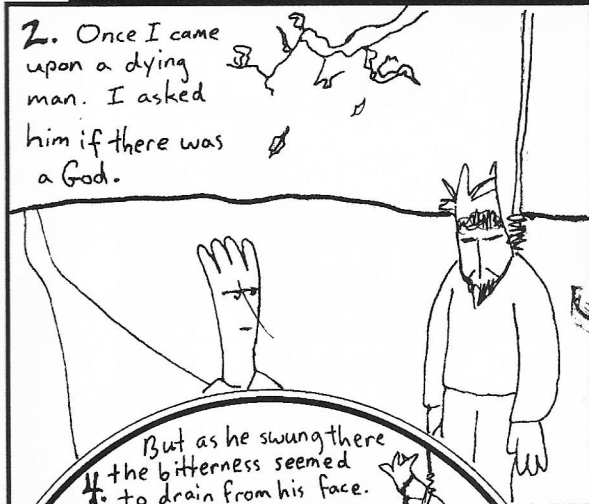 2. Once I came
upon a dying
man. I asked
him if there was
a God.
But as he swung there
4. the bitterness seemed
to drain from his face.